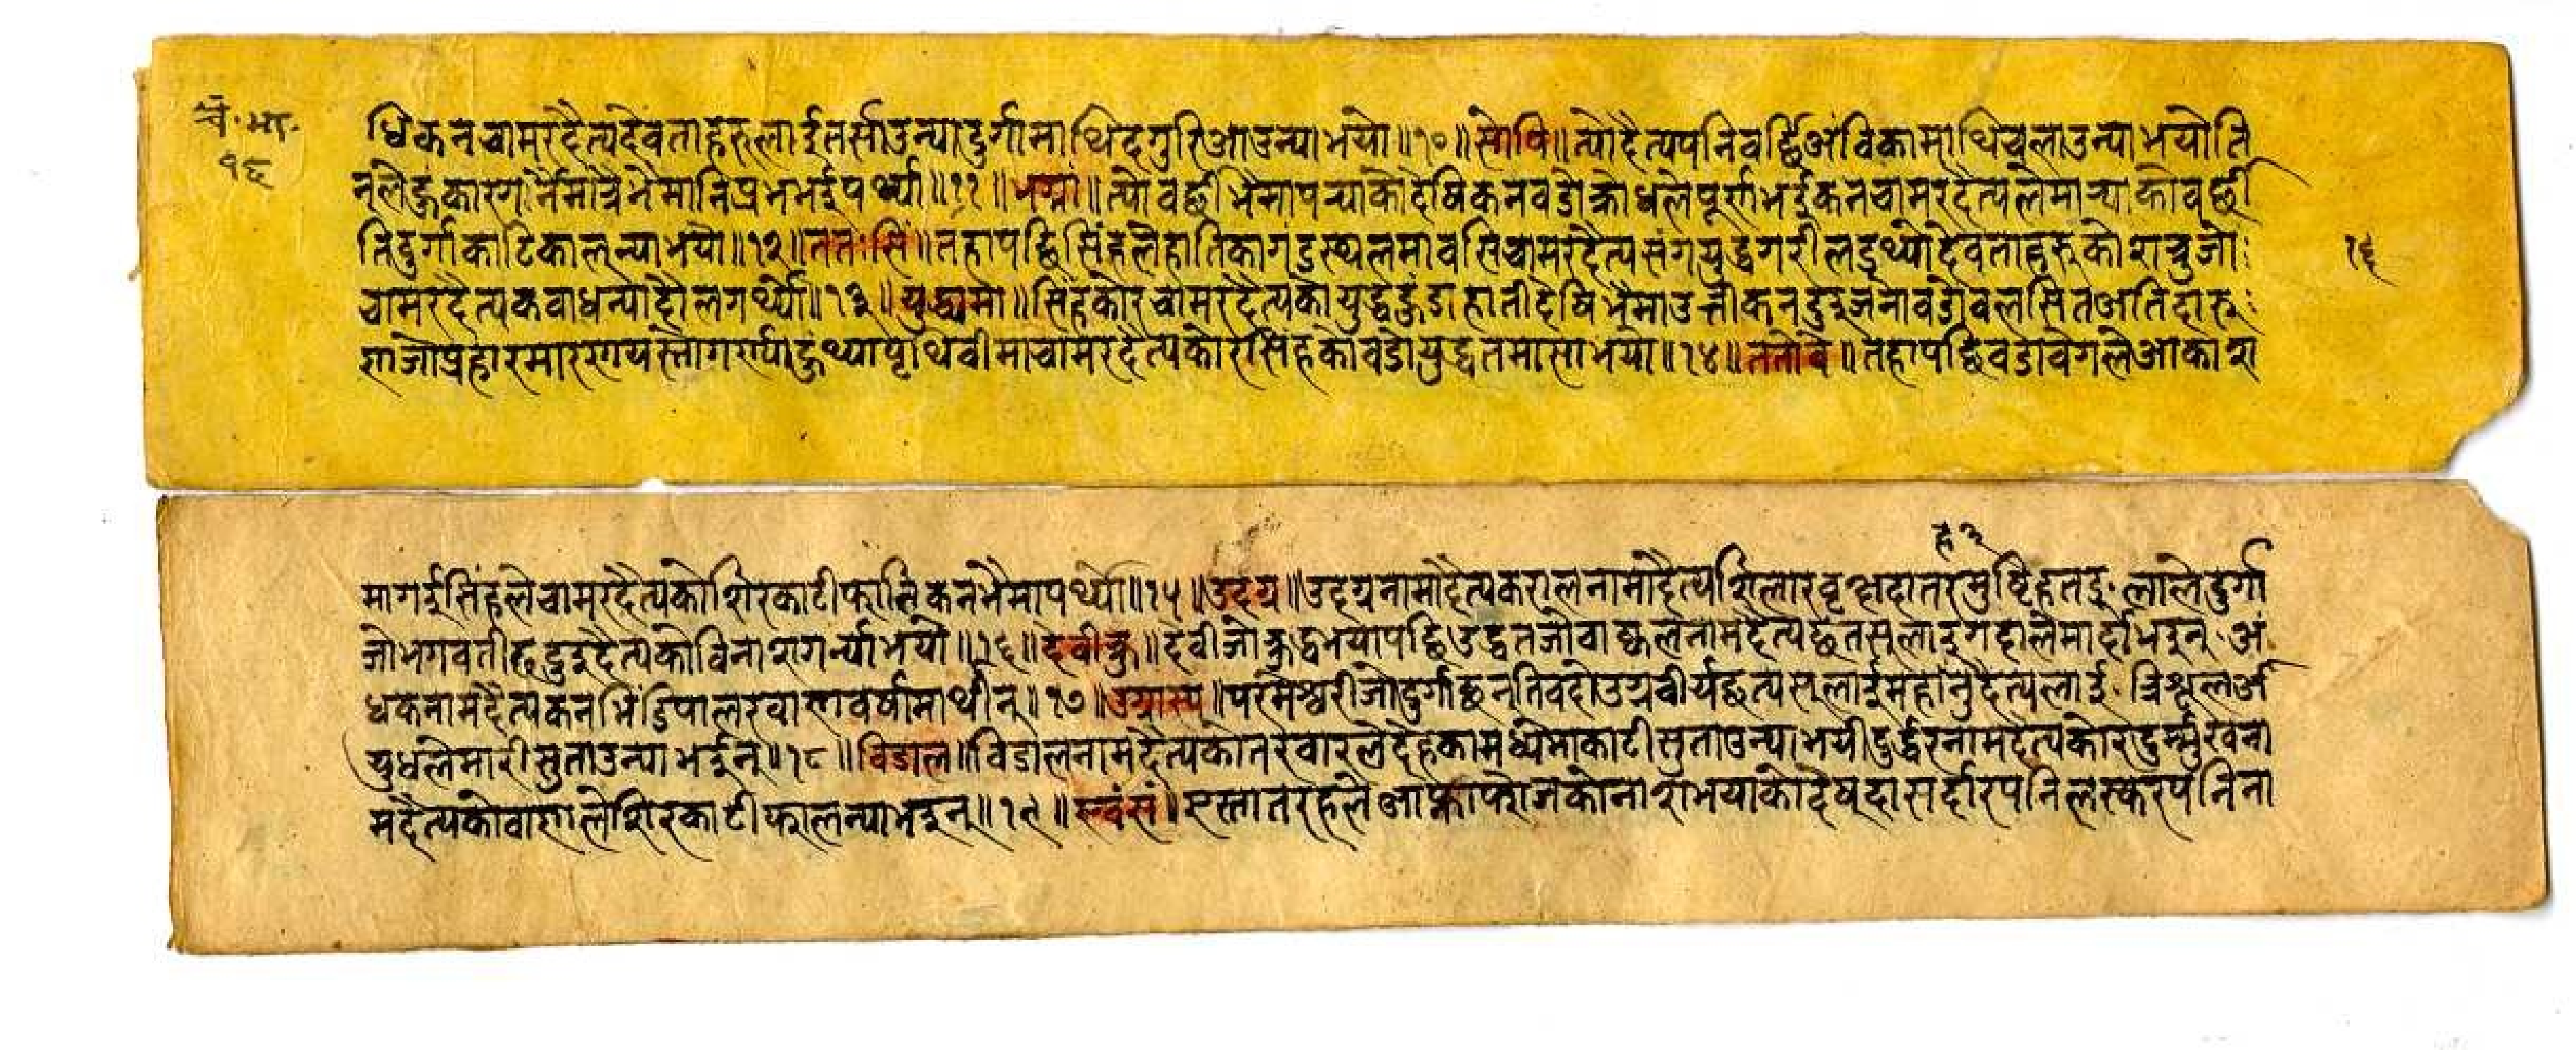 चं. भा.
१६
षिकनचामरदैत्यदेवताहरुलाईतर्साउन्यादुर्गामाथिदगुरिआउन्याभयो॥१०॥सोपि॥त्योदैत्यपनिवर्छिअंविकामाथिचलाउन्याभयोति
नलेहुकारगर्नेमात्रैभैमानिप्रभनभईपर्थ्यो॥११॥भग्नां॥त्योवर्छीभैमापर्‍याकोदेषिकनवडोक्रोधलेपूर्णभईकनचामरदैत्यलेमार्‍याकोवर्छी
तिदुर्गाकाटिफालन्याभयो॥१२॥ततःसिं॥तहापछिसिंहलेहातिकागंडस्थलमावसिचामरदैत्यसंगयुद्धगरीलडथ्योदेवताहरुकोशत्रुजो
चामरदैत्यकवाधन्यादौलगर्थ्यो॥१३॥युद्ध्यमा॥सिंहकोरचामरदैत्यकोयुद्धहुंडाहातीदेषिभैमाउत्रीकनदुइजनावडोवलसितअतिदारु
१६
णजोप्रहारमारणयस्तोगर्दाहुंथ्यापृथिवीमाचामरदैत्यकोरसिंहकोवडोयुद्धतमासाभयो॥१४॥ततोवे॥तहापछिवडावेगलेआकाश
हरु
मागईसिंहलेचामरदैत्यकोशिरकाटीफालिकनभैमापर्थ्यो॥१५॥उदग्र॥उदग्रनामादैत्यकरालनामादैत्यशिलारवृक्षदातरमुष्टिहतदलालेदुर्गा
जोभगवतीहदुइदैत्यकोविनाशगर्न्याभयो॥१६॥देवीक्रु॥देवीजोक्रुद्धभयापछिउद्धतजोवाष्कलनामदैत्यछतसलाईगदालेमार्दाभइन्अं
धकनामदैत्यकनभिंडिपालरवाणवर्षामार्थीन्॥१७॥उग्रास्य॥परमेश्वरीजोदुर्गाछन्तिवडोउग्रवीर्यछत्यसलाईमहानुदैत्यलाईत्रिशूलआ
युधलेमारीसुताउन्याभईन्॥१८॥विडाल॥विडालनामदैत्यकोतरवारलेदेहकामध्येमाकाटीसुताउन्याभयीदुर्द्धरनामदैत्यकोरदुर्म्मुखना
मदैत्यकोवाणलेशिरकाटीफालन्याभइन्॥१९॥एवंसं॥एस्तातरहलेआफ्नाफौजकोनाशभयाकोदेषदासर्दारपनिलस्करपनिना